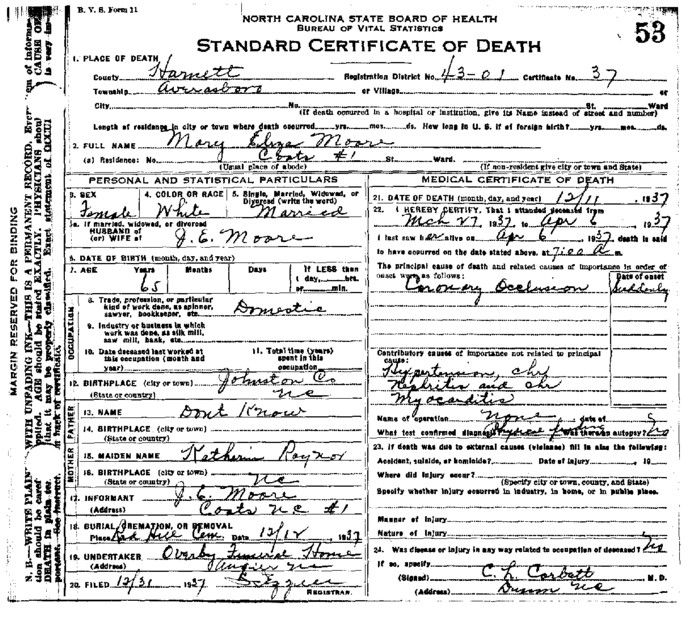 B. V. S. Form 11
NORTH CAROLINA STATE BOARD OF HEALTH
BUREAU OF VITAL STATISTICS
STANDARD CERTIFICATE OF DEATH
53
1. PLACE OF DEATH
County Harnett Registration District No. 43-01 Certificate No. 37
Township Averasboro or Village or
City No. St. Ward
(If death occurred in a hospital or institution, give its Name instead of street and number)
Length of residence in city or town where death occurred yrs. mos. ds. How long in U. S. if of foreign birth? yrs. mos. ds.
2. FULL NAME Mary Eliza Moore
(a) Residence: No. Coats #1 St. Ward.
(Usual place of abode) (If non-resident give city or town and State)
PERSONAL AND STATISTICAL PARTICULARS
3. SEX 4. COLOR OR RACE 5. Single, Married, Widowed, or Divorced (write the word)
Female White Married
5a. If married, widowed, or divorced
HUSBAND of
(or) WIFE of J. E. Moore
6. DATE OF BIRTH (month, day, and year)
7. AGE Years Months Days If LESS than
1 day, hrs.
65 or min.
OCCUPATION
8. Trade, profession, or particular
kind of work done, as spinner,
sawyer, bookkeeper, etc. Domestic
9. Industry or business in which
work was done, as silk mill,
saw mill, bank, etc.
10. Date deceased last worked at
this occupation (month and
year)
11. Total time (years)
spent in this
occupation
12. BIRTHPLACE (city or town) Johnston Co
(State or country) NC
FATHER
13. NAME Dont Know
14. BIRTHPLACE (city or town)
(State or country)
MOTHER
15. MAIDEN NAME Katherine Raynor
16. BIRTHPLACE (city or town)
(State or country) NC
17. INFORMANT J. E. Moore
(Address) Coats NC #1
18. BURIAL, CREMATION, OR REMOVAL
Place Red Hill Cem. Date 12/12, 1937
19. UNDERTAKER Overby Funeral Home
(Address) Angier NC
20. FILED 12/31, 1937
REGISTRAR.
MEDICAL CERTIFICATE OF DEATH
21. DATE OF DEATH (month, day, and year) 12/11, 1937
22. I HEREBY CERTIFY, That I attended deceased from
Mch 27, 1937, to Apr 6, 1937
I last saw her alive on Apr 6, 1937, death is said
to have occurred on the date stated above, at 7:00 A m.
The principal cause of death and related causes of importance in order of
onset were as follows: Date of onset
Coronary Occlusion Suddenly
Contributory causes of importance not related to principal
cause:
Hypertension, chr
Nephritis and chr
Myocarditis
Name of operation None date of
What test confirmed diagnosis? Physical Was there an autopsy? No
23. If death was due to external causes (violence) fill in also the following:
Accident, suicide, or homicide? Date of injury , 19
Where did injury occur?
(Specify city or town, county, and State)
Specify whether injury occurred in industry, in home, or in public place.
Manner of injury
Nature of injury
24. Was disease or injury in any way related to occupation of deceased? No
If so, specify
(Signed) C. L. Corbett M. D.
(Address) Dunn NC
MARGIN RESERVED FOR BINDING